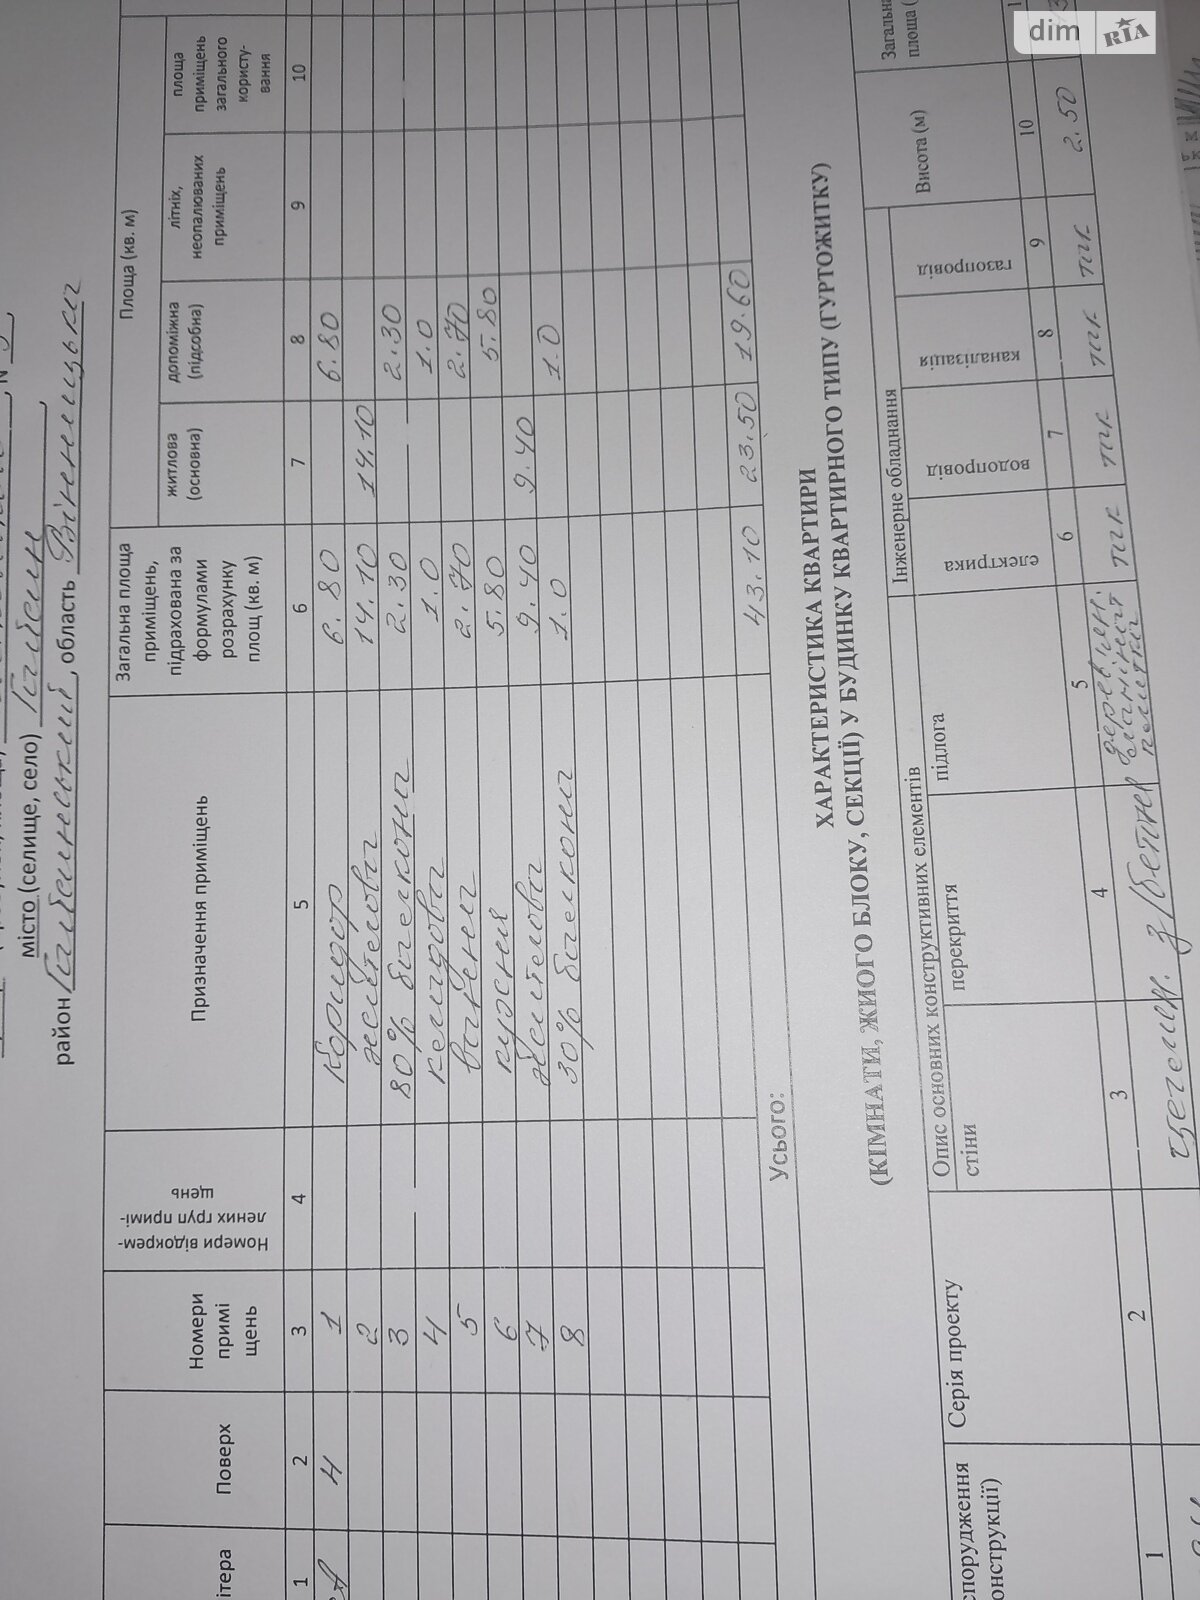 місто (селище, село) Гайсин,
район Гайсинський, область Вінницька
ітера
Поверх
Номери примі щень
Номери відокрем- лених груп примі- щень
Призначення приміщень
Загальна площа приміщень, підрахована за формулами розрахунку площ (кв. м)
Площа (кв. м)
житлова (основна)
допоміжна (підсобна)
літніх, неопалюваних приміщень
площа приміщень загального користу- вання
1 2 3 4 5 6 7 8 9 10
4 1 Коридор 6.80 6.80
2 житлова 14.10 14.10
3 80% балкона 2.30 2.30
4 кладова 1.0 1.0
5 ванна 2.70 2.70
6 кухня 5.80 5.80
7 житлова 9.40 9.40
8 30% балкона 1.0 1.0
Усього: 43.10 23.50 19.60
ХАРАКТЕРИСТИКА КВАРТИРИ
(КІМНАТИ, ЖИОГО БЛОКУ, СЕКЦІЇ) У БУДИНКУ КВАРТИРНОГО ТИПУ (ГУРТОЖИТКУ)
спорудження
онструкції)
Серія проекту
Опис основних конструктивних елементів
стіни
перекриття
підлога
Інженерне обладнання
електрика
водопровід
каналізація
газопровід
Висота (м)
Загальна площа (
1 2 3 4 5 6 7 8 9 10
цегелн. з/бетон дерев'ян. ламінат плитка так так так так 2.50
dim RIA